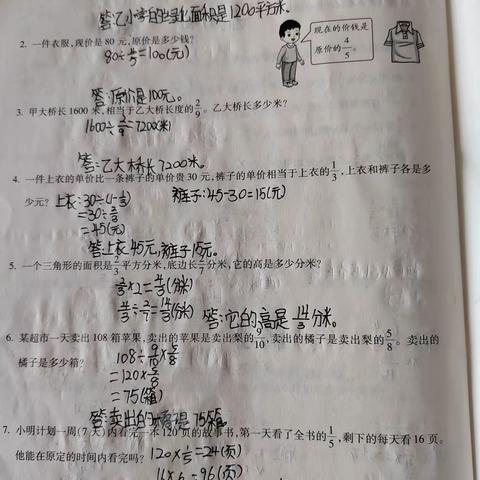 答:乙小学的绿化面积是1200平方米。
2. 一件衣服,现价是80元,原价是多少钱?
80÷4/5=100(元)
现在的价钱是
原价的4/5。
答:原价是100元。
3. 甲大桥长1600米,相当于乙大桥长度的2/9。乙大桥长多少米?
1600÷2/9=7200(米)
答:乙大桥长7200米。
4. 一件上衣的单价比一条裤子的单价贵30元,裤子的单价相当于上衣的1/3,上衣和裤子各是多
少元?
上衣:30÷(1-1/3)
=30÷2/3
=45(元)
裤子:45-30=15(元)
答:上衣45元,裤子15元。
5. 一个三角形的面积是2/3平方分米,底边长2/7分米,它的高是多少分米?
2/3×2=4/3(分米)
4/3÷2/7=14/3(分米)
答:它的高是14/3分米。
6. 某超市一天卖出108箱苹果,卖出的苹果是卖出梨的9/10,卖出的橘子是卖出梨的5/8。卖出的
橘子是多少箱?
108÷9/10×5/8
=120×5/8
=75(箱)
答:卖出的橘子是75箱。
7. 小明计划一周(7天)内看完一本120页的故事书,第一天看了全书的1/5,剩下的每天看16页。
他能在原定的时间内看完吗?
120×1/5=24(页)
16×6=96(页)